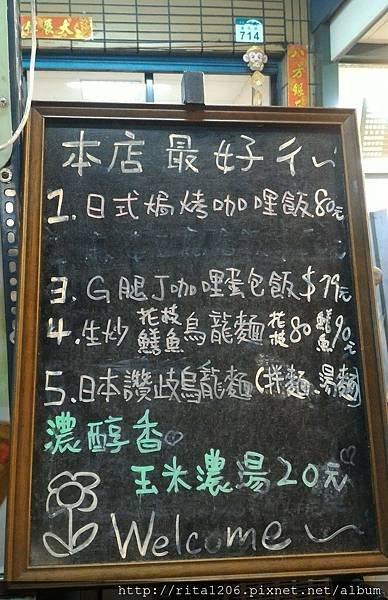 714
本店最好ㄔ
1.日式焗烤咖哩飯80元
3.G腿J咖哩蛋包飯$79元
4.生炒花枝鱔魚烏龍麵花枝80鱔魚90元
5.日本讚歧烏龍麵(拌麵、湯麵)
濃醇香
玉米濃湯20元
Welcome
http://rita1206.pixnet.net/album